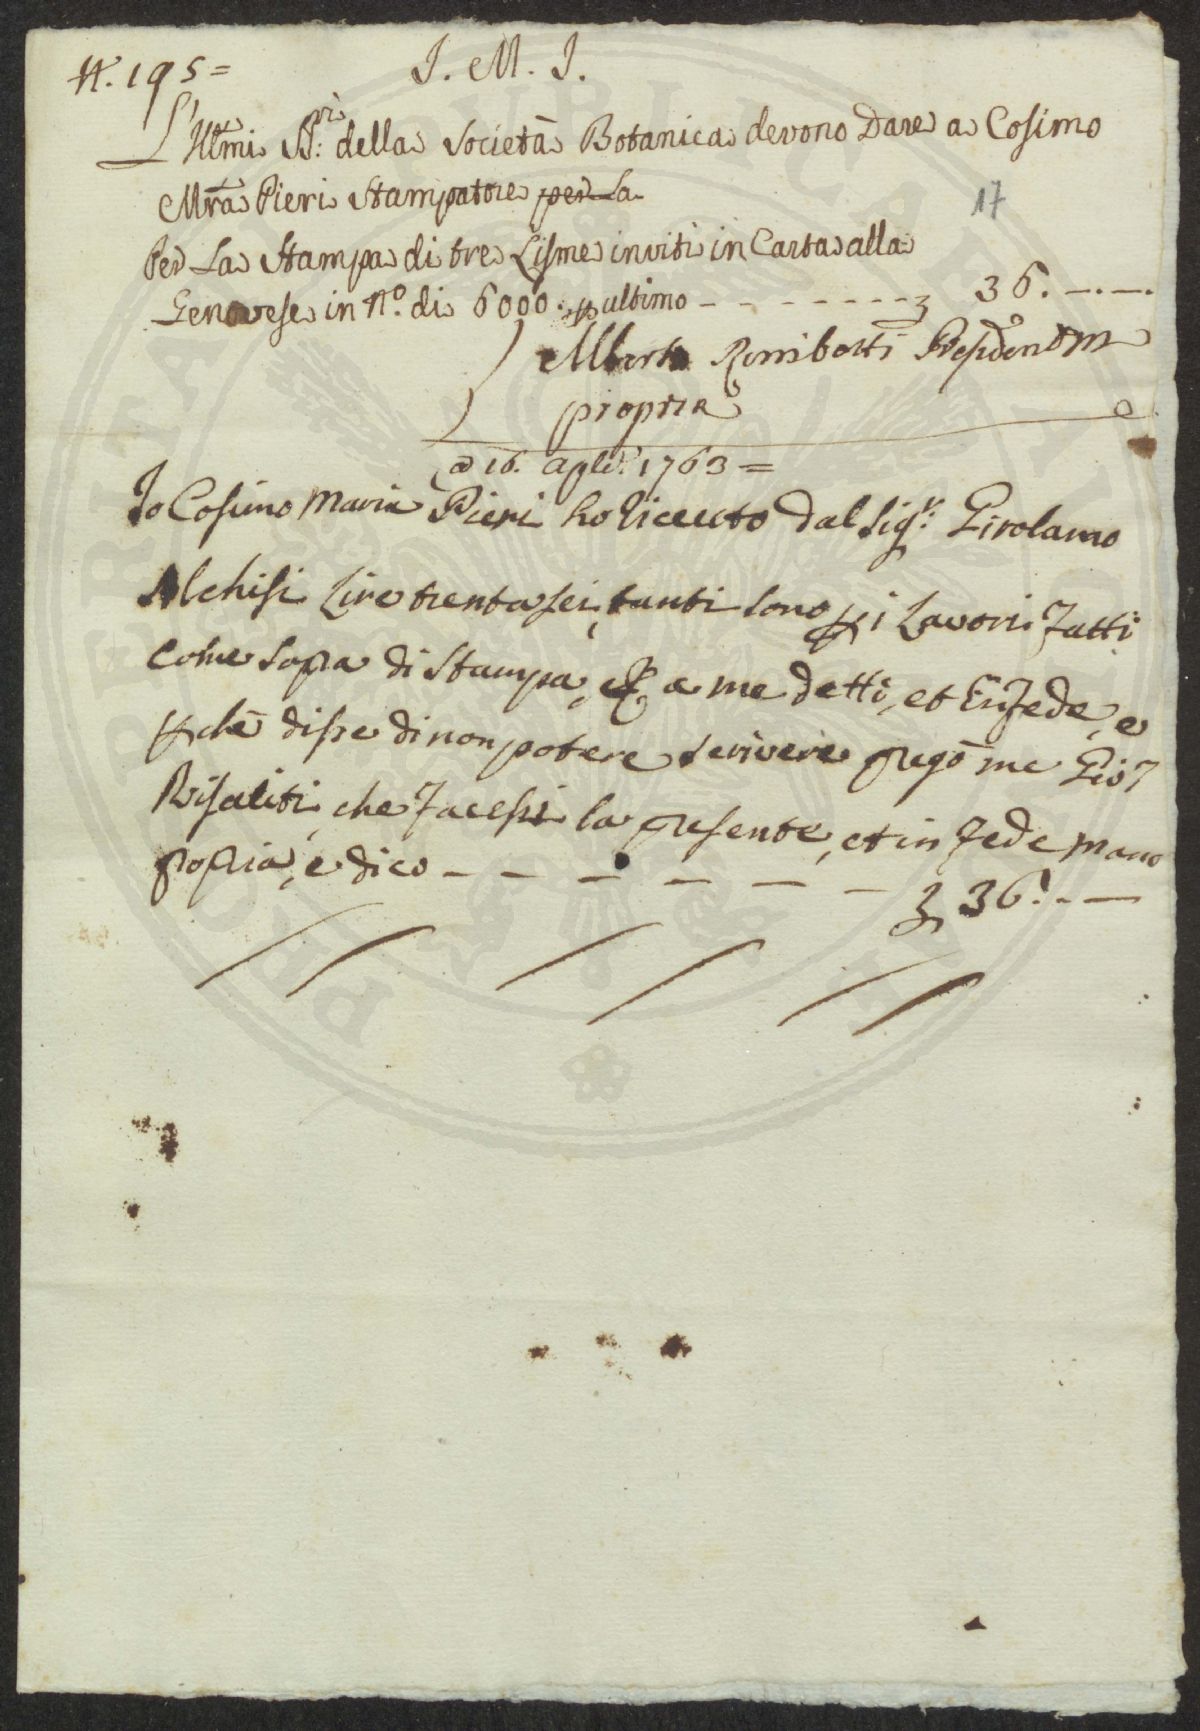 N. 195 =
J. M. J.
L'Illmi SS:ri della Società Botanica devono Dare a Cosimo
Mra Pieri Stampatore per La
17
Per La Stampa di tre Lisme inviti in Carta alla
Genovese in N.o di 6000. p ultimo - - - - - - - 36. -.-.
Alberto Rimbotti Presidente M
propria
a 16. aple. 1763 =
Io Cosimo Maria Pieri ho riceuto dal Sig.r Girolamo
Alchisi Lire trenta sei, tanti sono p i Lavori fatti
come sopra di Stampa, et a me detti, et in fede, e
p chè disse di non potere scrivere pregò me Gio
Risaliti, che facessi la presente, et in fede mano
propria, e dico - - - - - - 36. - -
PROPRIETA PUBLICA